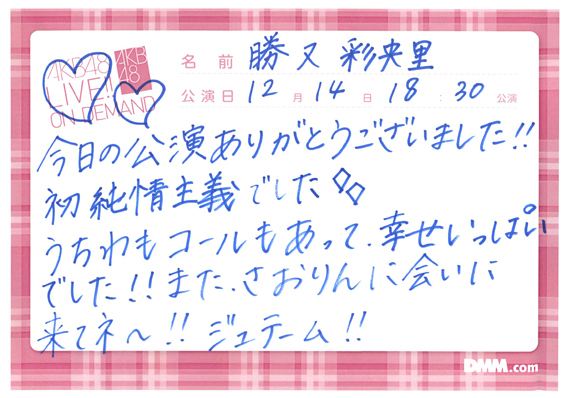 AKB48
LIVE!!
ON DEMAND
AKB
48
名前 勝又 彩央里
公演日 12月14日 18:30公演
今日の公演ありがとうございました!!
初純情主義でした◇◇
うちわもコールもあって、幸せいっぱい
でした!!また、さおりんに会いに
来てネ〜!! ジュテーム!!
DMM.com